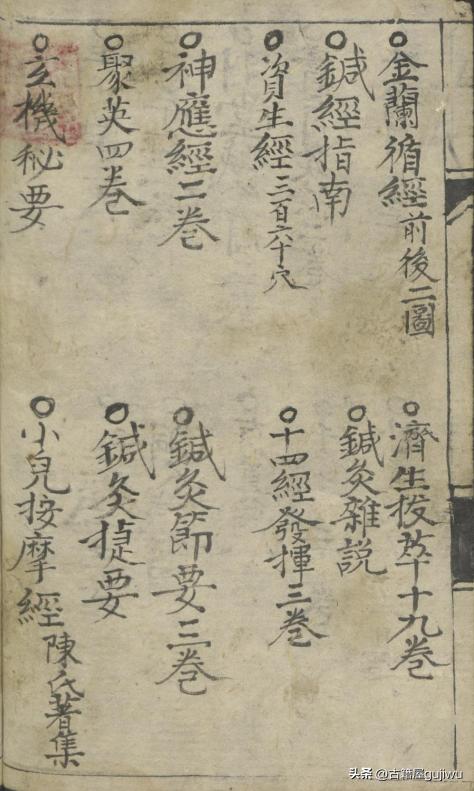 ○金蘭循經前後二圖
○濟生拔萃十九卷
○鍼經指南
○鍼灸雜説
○資生經三百六十穴
○十四經發揮三卷
○神應經二卷
○鍼灸節要三卷
○聚英四卷
○鍼灸捷要
○玄機秘要
○小兒按摩經陳氏著集
头条 @古籍屋gujiwu